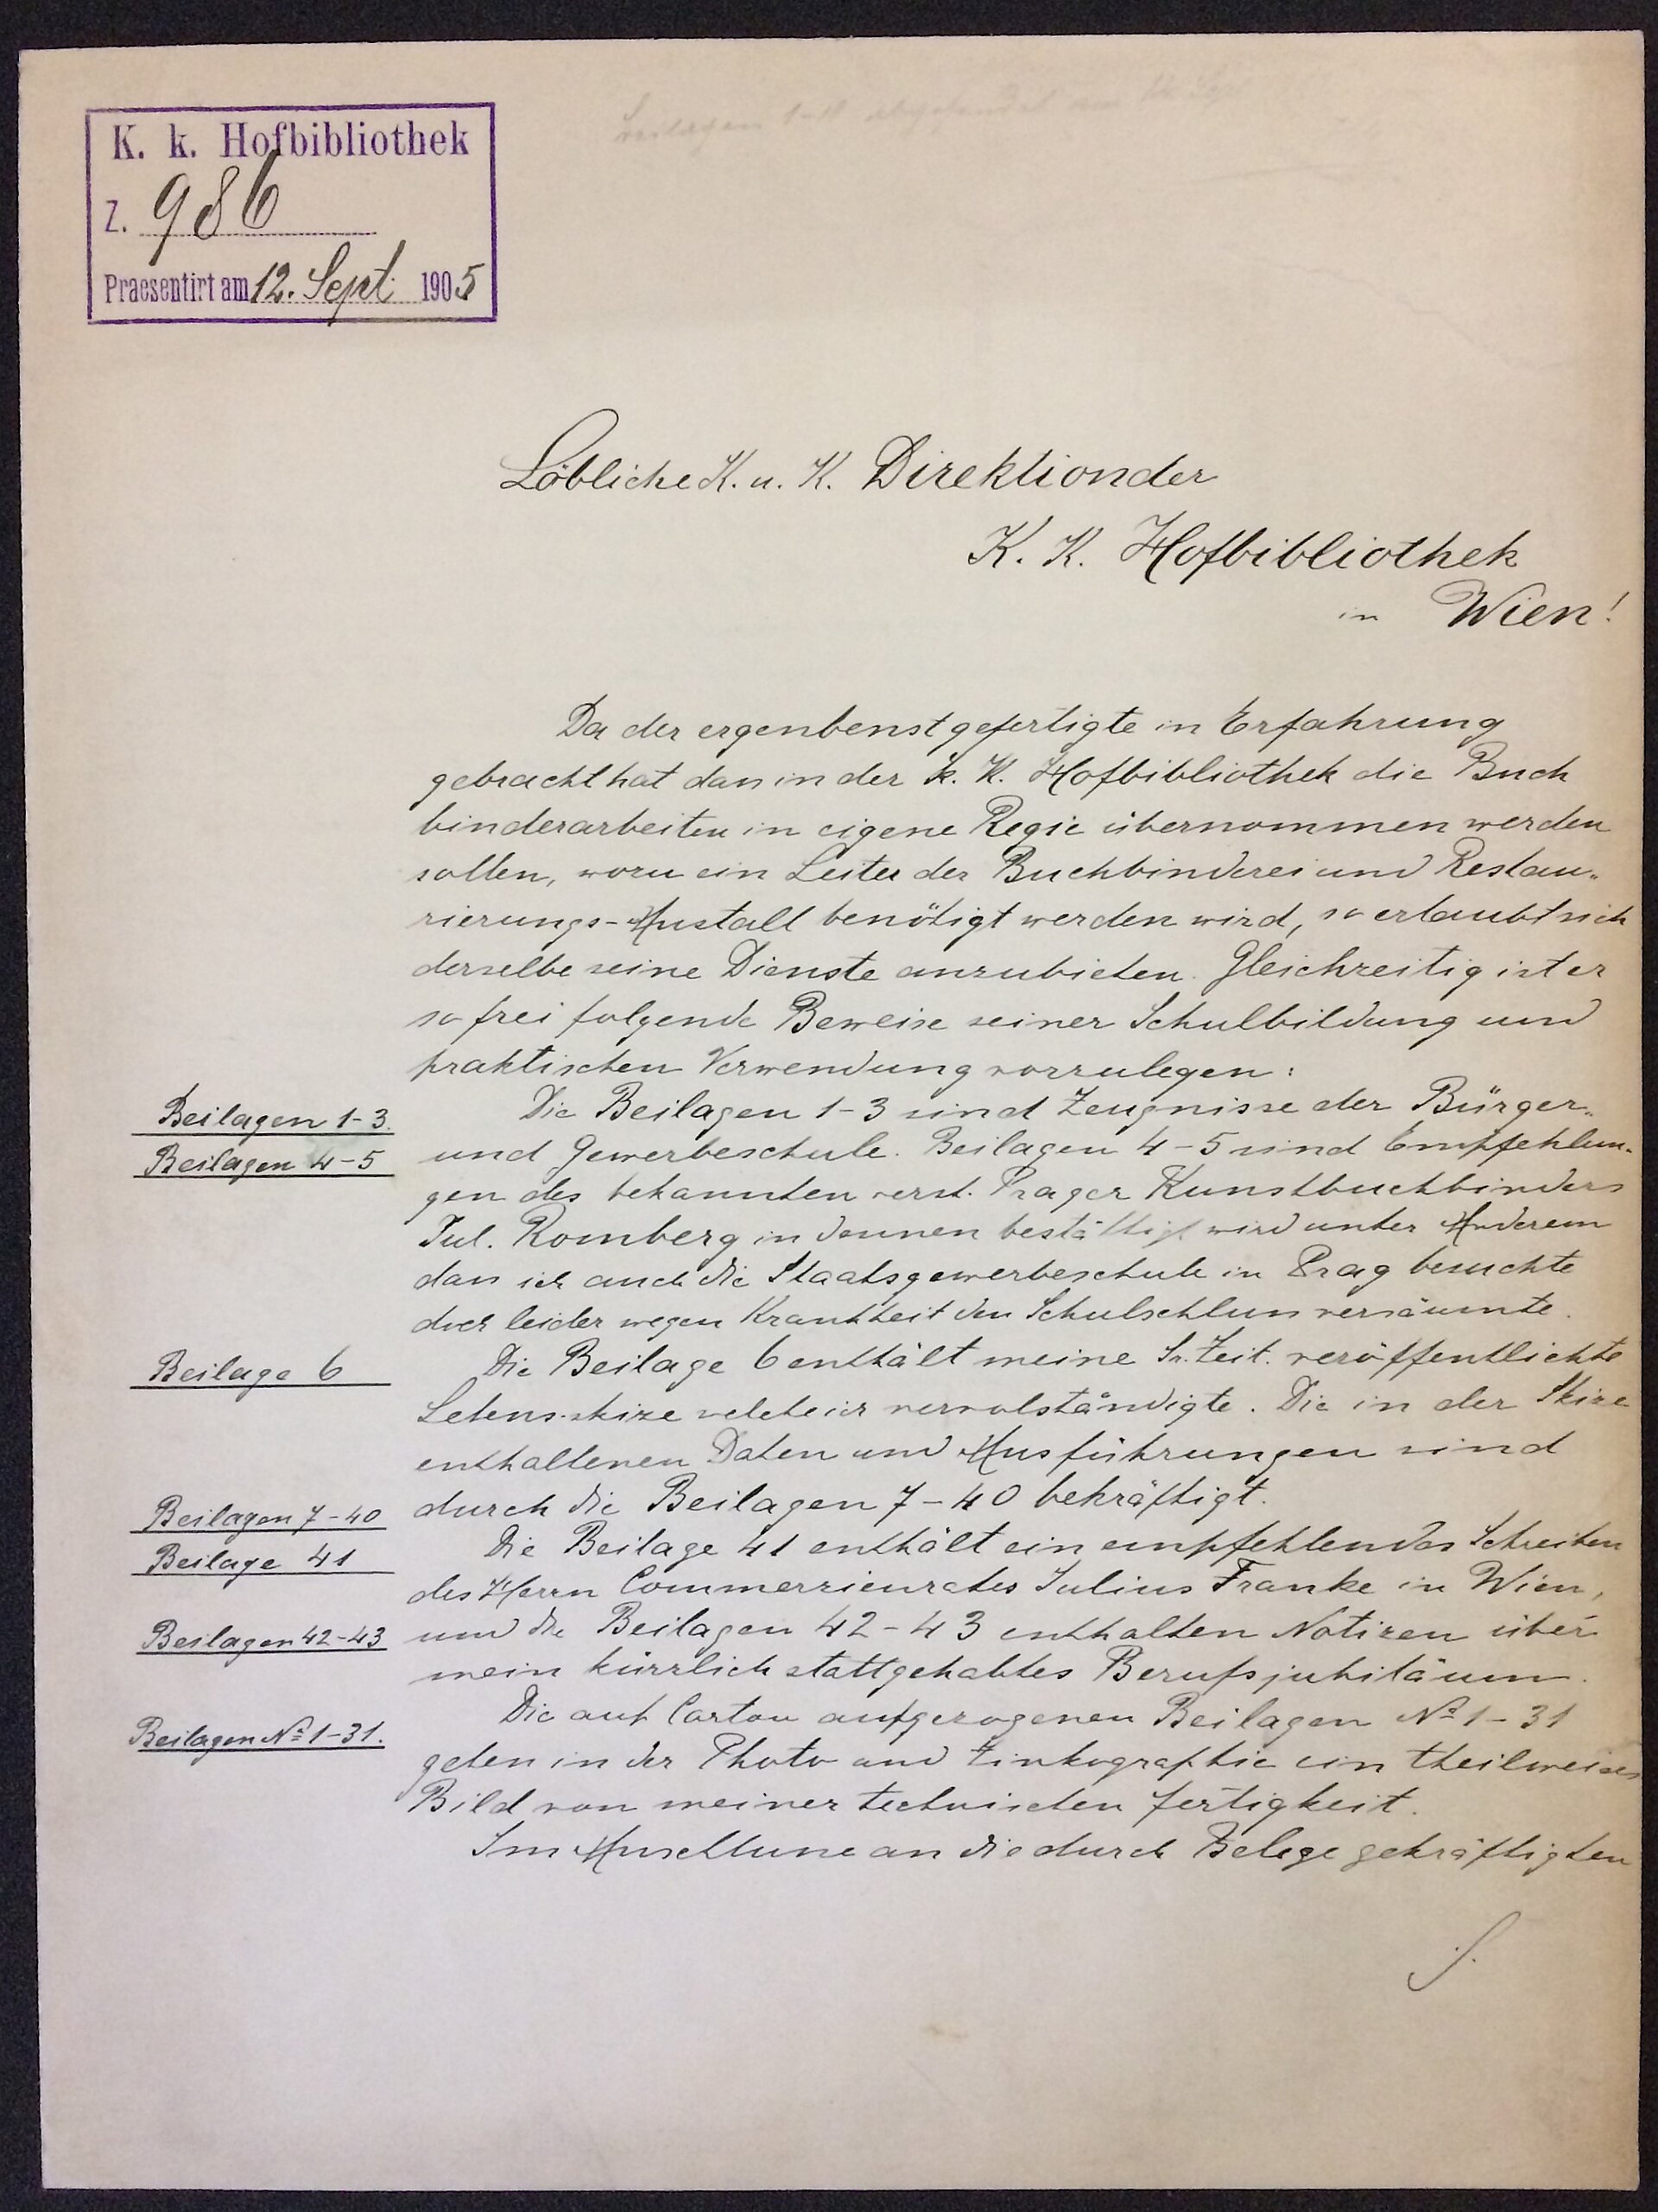 K. k. Hofbibliothek
Z. 986
Praesentirt am 12. Sept. 1905
Löbliche K. u. K. Direktion der
K. K. Hofbibliothek
in Wien!
Da der ergenbenst gefertigte in Erfahrung
gebracht hat dass in der k. K. Hofbibliothek die Buch
binderarbeiten in eigene Regie übernommen werden
sollen, wozu ein Leiter der Buchbinderei und Restau-
rierungs-Anstalt benötigt werden wird, so erlaubt sich
derselbe seine Dienste anzubieten. Gleichzeitig ist er
so frei folgende Beweise seiner Schulbildung und
praktischen Verwendung vorzulegen:
Beilagen 1-3.
Die Beilagen 1-3 sind Zeugnisse der Bürger-
Beilagen 4-5
und Gewerbeschule. Beilagen 4-5 sind Empfehlun-
gen des bekannten verst. Prager Kunstbuchbinders
Jul. Romberg in dennen bestättigt wird unter Anderem
dass ich auch die Staatsgewerbeschule in Prag besuchte
doch leider wegen Krankheit den Schulschluss versäumte.
Beilage 6
Die Beilage 6 enthält meine Zeit. veröffentlichte
Lebens-skize welche ich vervolständigte. Die in der Skize
enthaltenen Daten und Ausführungen sind
Beilagen 7-40
durch die Beilagen 7-40 bekräftigt.
Beilage 41
Die Beilage 41 enthält ein empfehlendes Schreiben
des Herrn Commerzienrates Julius Franke in Wien,
Beilagen 42-43
und die Beilagen 42-43 enthalten Notizen über
mein kürzlich stattgehabtes Berufsjubiläum.
Beilagen No 1-31.
Die auf Carton aufgezogenen Beilagen No 1-31
geben in der Photo und Zinkographie ein theilweises
Bild von meiner technischen fertigkeit.
Im Anschlusse an die durch Belege gekräftigten